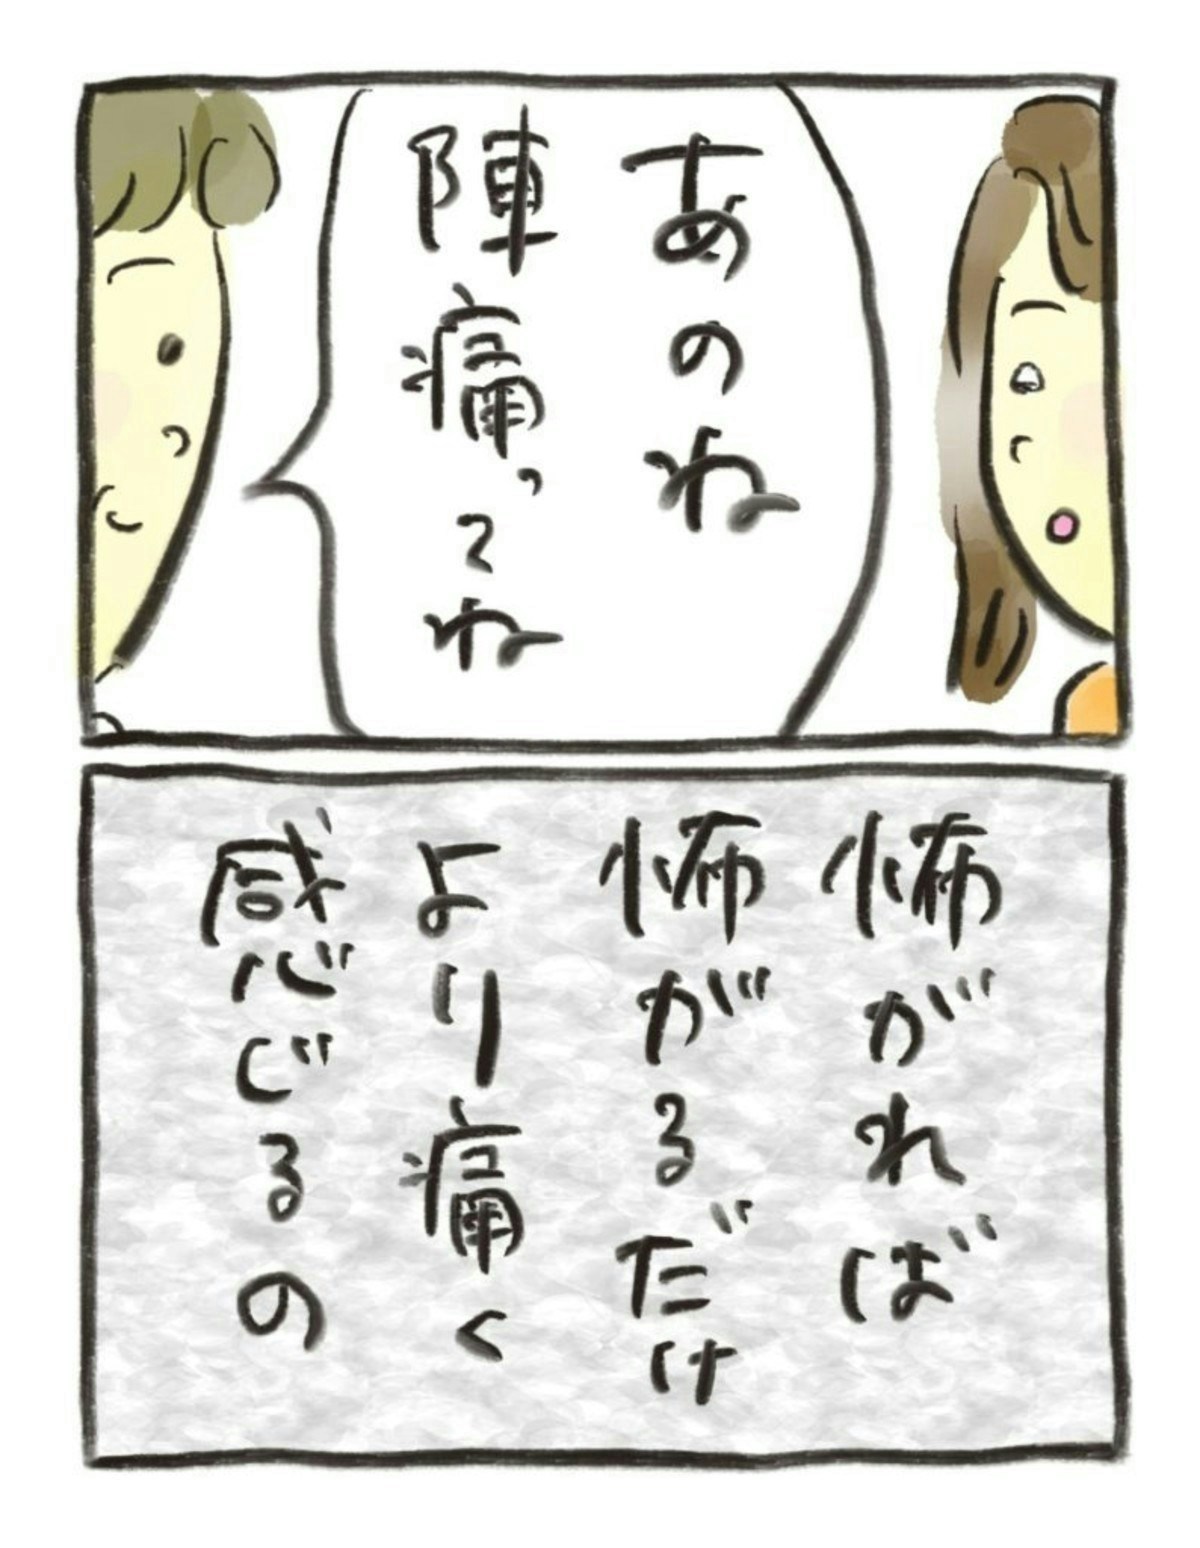 あのね
陣痛ってね
怖がれば
怖がるだけ
より痛く
感じるの